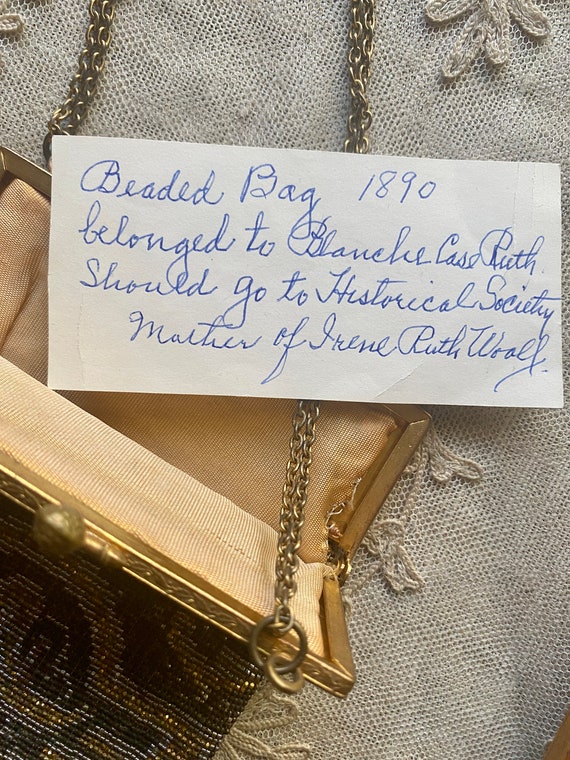 Beaded Bag 1890
belonged to Blanche Case Ruth.
Should go to Historical Society
Mother of Irene Ruth Woolf.